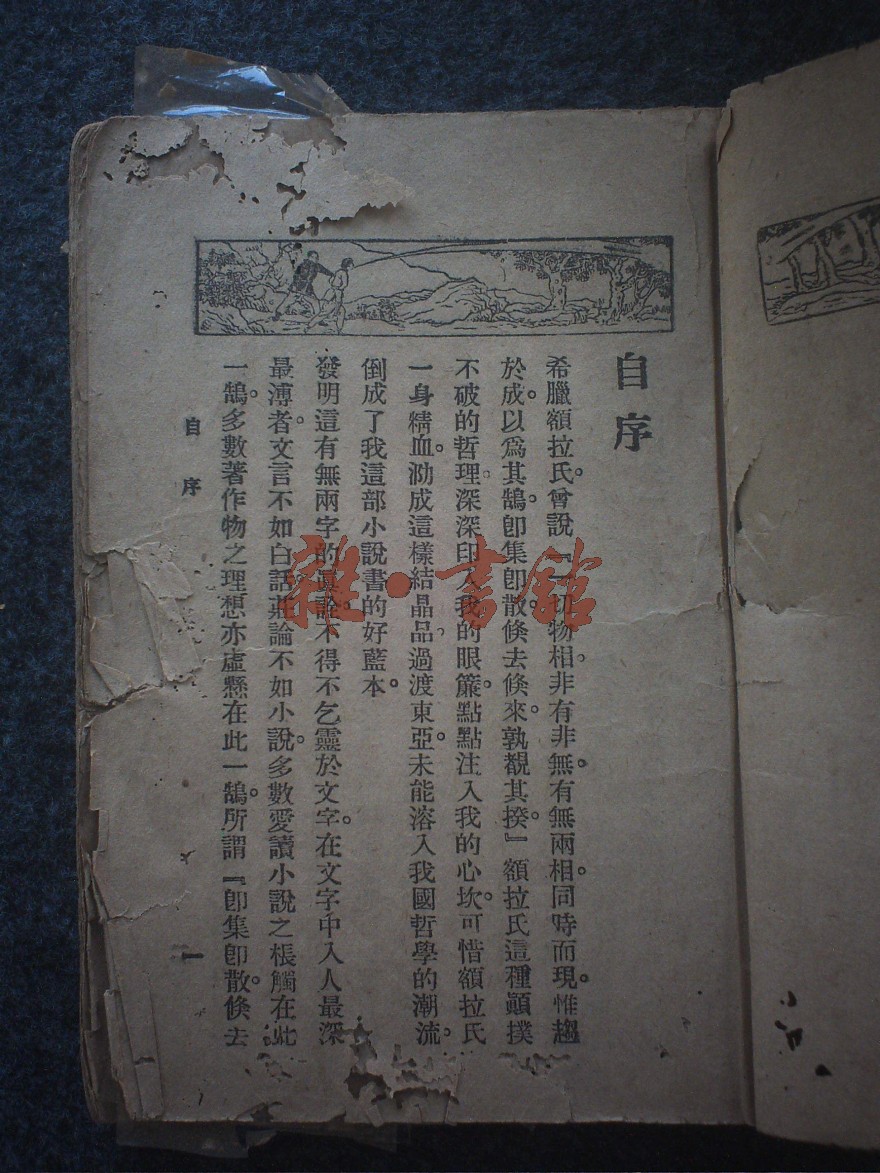 自序
希臘額拉氏。曾說『一切物相。非有非無。有無兩相。同時而現。惟趨
於成。以爲其鵠。卽集卽散。倏去倏來。孰覩其揆。』額拉氏這種顚撲
不破的哲理。深深印入我的眼簾。點點注入我的心坎。可惜額拉氏
一身精血。泐成這樣結晶品。過渡東亞。未能溶入我國哲學的潮流。
倒成了我這部小說書的好藍本。
發明這有無兩字的眞詮。不得不乞靈於文字。在文字中入人最深
最溥者。文言不如白話。莊論不如小說。多數愛讀小說之棖觸在此
一鵠。多數著作物之理想亦虛懸在此一鵠。所謂『卽集卽散。倏去
自序
一
雜·書館